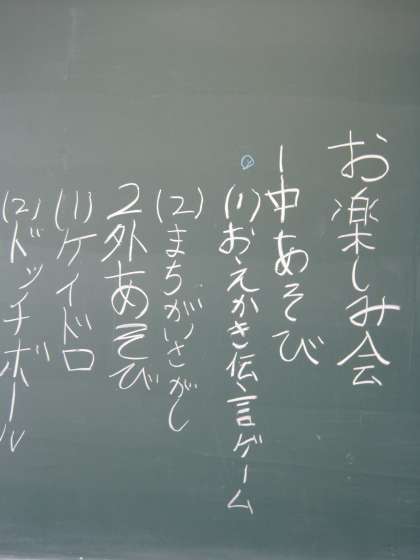 お楽しみ会
1中あそび
(1)おえかき伝言ゲーム
(2)まちがいさがし
2外あそび
(1)ケイドロ
(2)ドッチボール